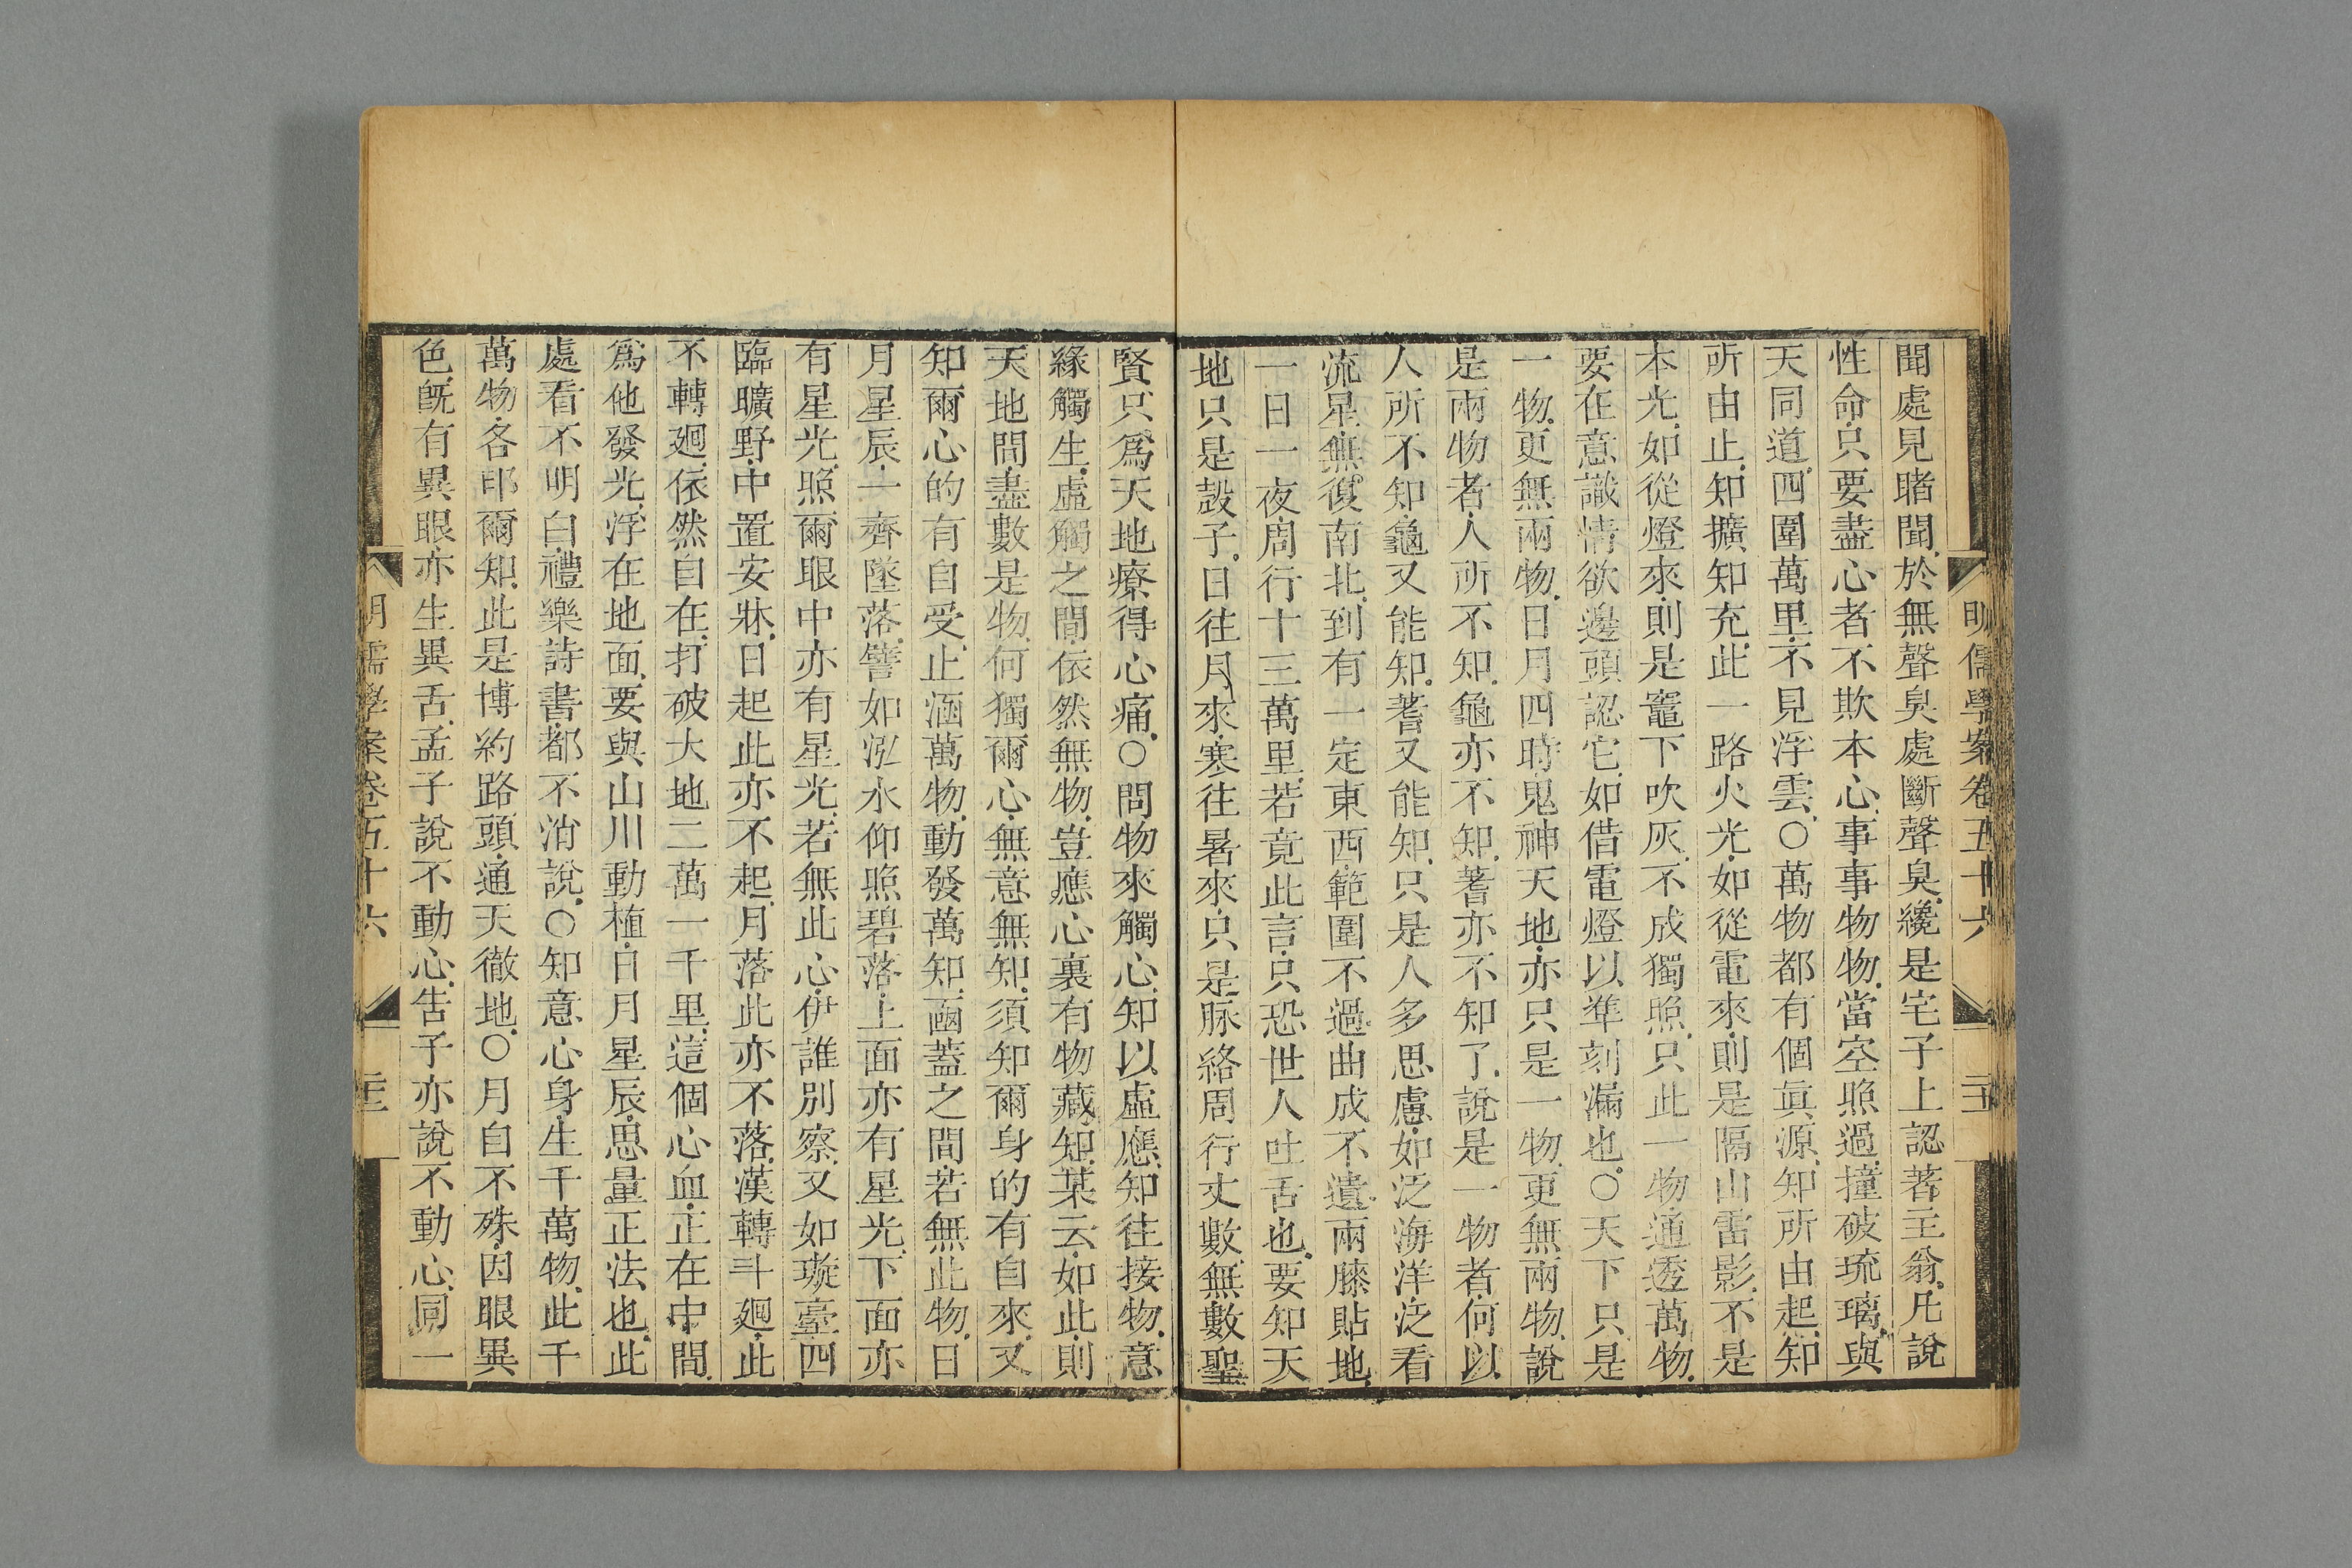 聞處見睹聞於無聲臭處斷聲臭纔是宅子上認著主翁凡說
性命只要盡心者不欺本心事事物物當空照過撞破琉璃與
天同道四圍萬里不見浮雲○萬物都有個真源知所由起知
所由止知擴知充此一路火光如從電來則是隔山雷影不是
本光如從燈來則是竈下吹灰不成獨照只此一物通透萬物
要在意識情欲邊頭認它如借電燈以準刻漏也○天下只是
一物更無兩物日月四時鬼神天地亦只是一物更無兩物說
是兩物者人所不知龜亦不知蓍亦不知了說是一物者何以
人所不知龜又能知蓍又能知只是人多思慮如泛海洋泛看
流星無復南北到有一定東西範圍不過曲成不遺兩膝貼地
一日一夜周行十三萬里若竟此言只恐世人吐舌也要知天
地只是瑴子日往月來寒往暑來只是脉絡周行丈數無數聖
賢只爲天地療得心痛○問物來觸心知以虛應知往接物意
緣觸生虛觸之間依然無物豈應心裏有物藏知某云如此則
天地間盡數是物何獨爾心無意無知須知爾身的有自來又
知爾心的有自受止涵萬物動發萬知函蓋之間若無此物日
月星辰一齊墜落譬如泓水仰照碧落上面亦有星光下面亦
有星光照爾眼中亦有星光若無此心伊誰別察又如璇臺四
臨曠野中置安牀日起此亦不起月落此亦不落漢轉斗廻此
不轉廻依然自在打破大地二萬一千里這個心血正在中間
爲他發光浮在地面要與山川動植日月星辰思量正法也此
處看不明白禮樂詩書都不消說○知意心身生千萬物此千
萬物各印爾知此是博約路頭通天徹地○月自不殊因眼異
色旣有異眼亦生異舌孟子說不動心告子亦說不動心同一
明儒學案卷五十六
明儒學案卷五十六